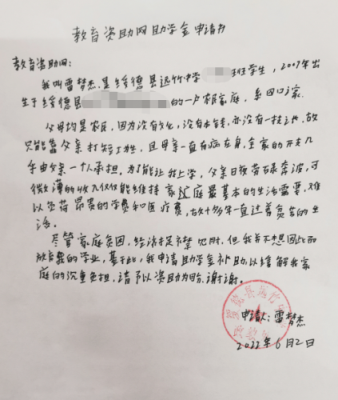 教育资助网助学金申请书
教育资助网:
我叫雷梦杰,是绥德县远竹中学 班学生,2007年出
生于绥德县 的一户农村家庭,系四口家.
父母均是农民,因为没有文化,没有本钱,亦没有一技之长,故
只能靠父亲打短工为生,且母亲一直有病在身,全家的开支几
乎由父亲一个人承担.为了能让我上学,父亲日夜劳碌奔波,可
微薄的收入仅仅能维持家庭最基本的生活需要,难
以负荷昂贵的学费和医疗费,故十多年一直过着贫苦的生
活.
尽管家庭贫困,经济拮据,但我并不想因此而
放弃我的学业,基于此,我申请助学金补助,以缓解我家
庭的沉重负担,请予以资助为盼,谢谢.
申请人:雷梦杰
2022年6月2日